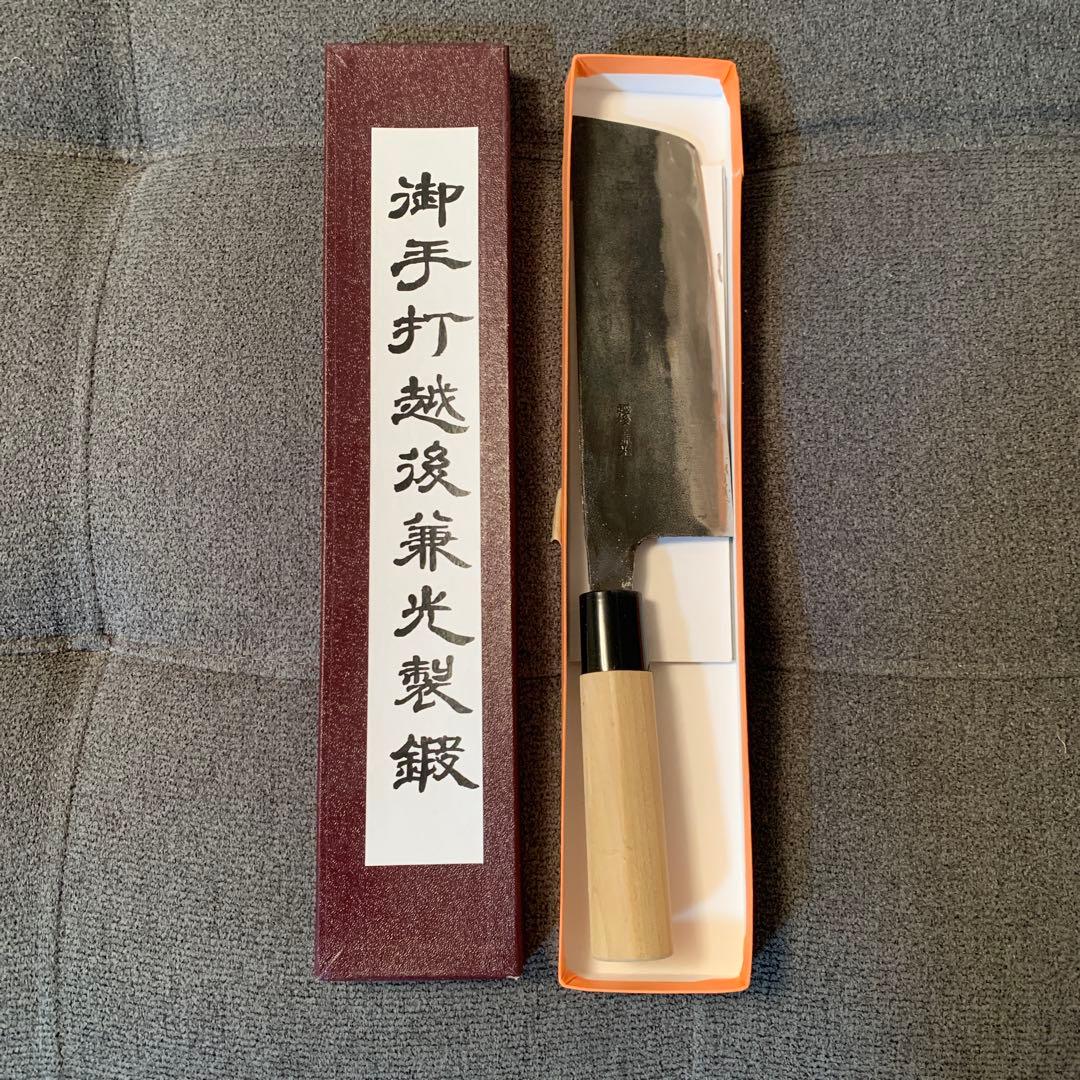 御手打越後兼光製鍛